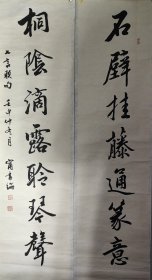 石壁挂藤通篆意
桐陰滴露聆琴聲
壬申仲冬月